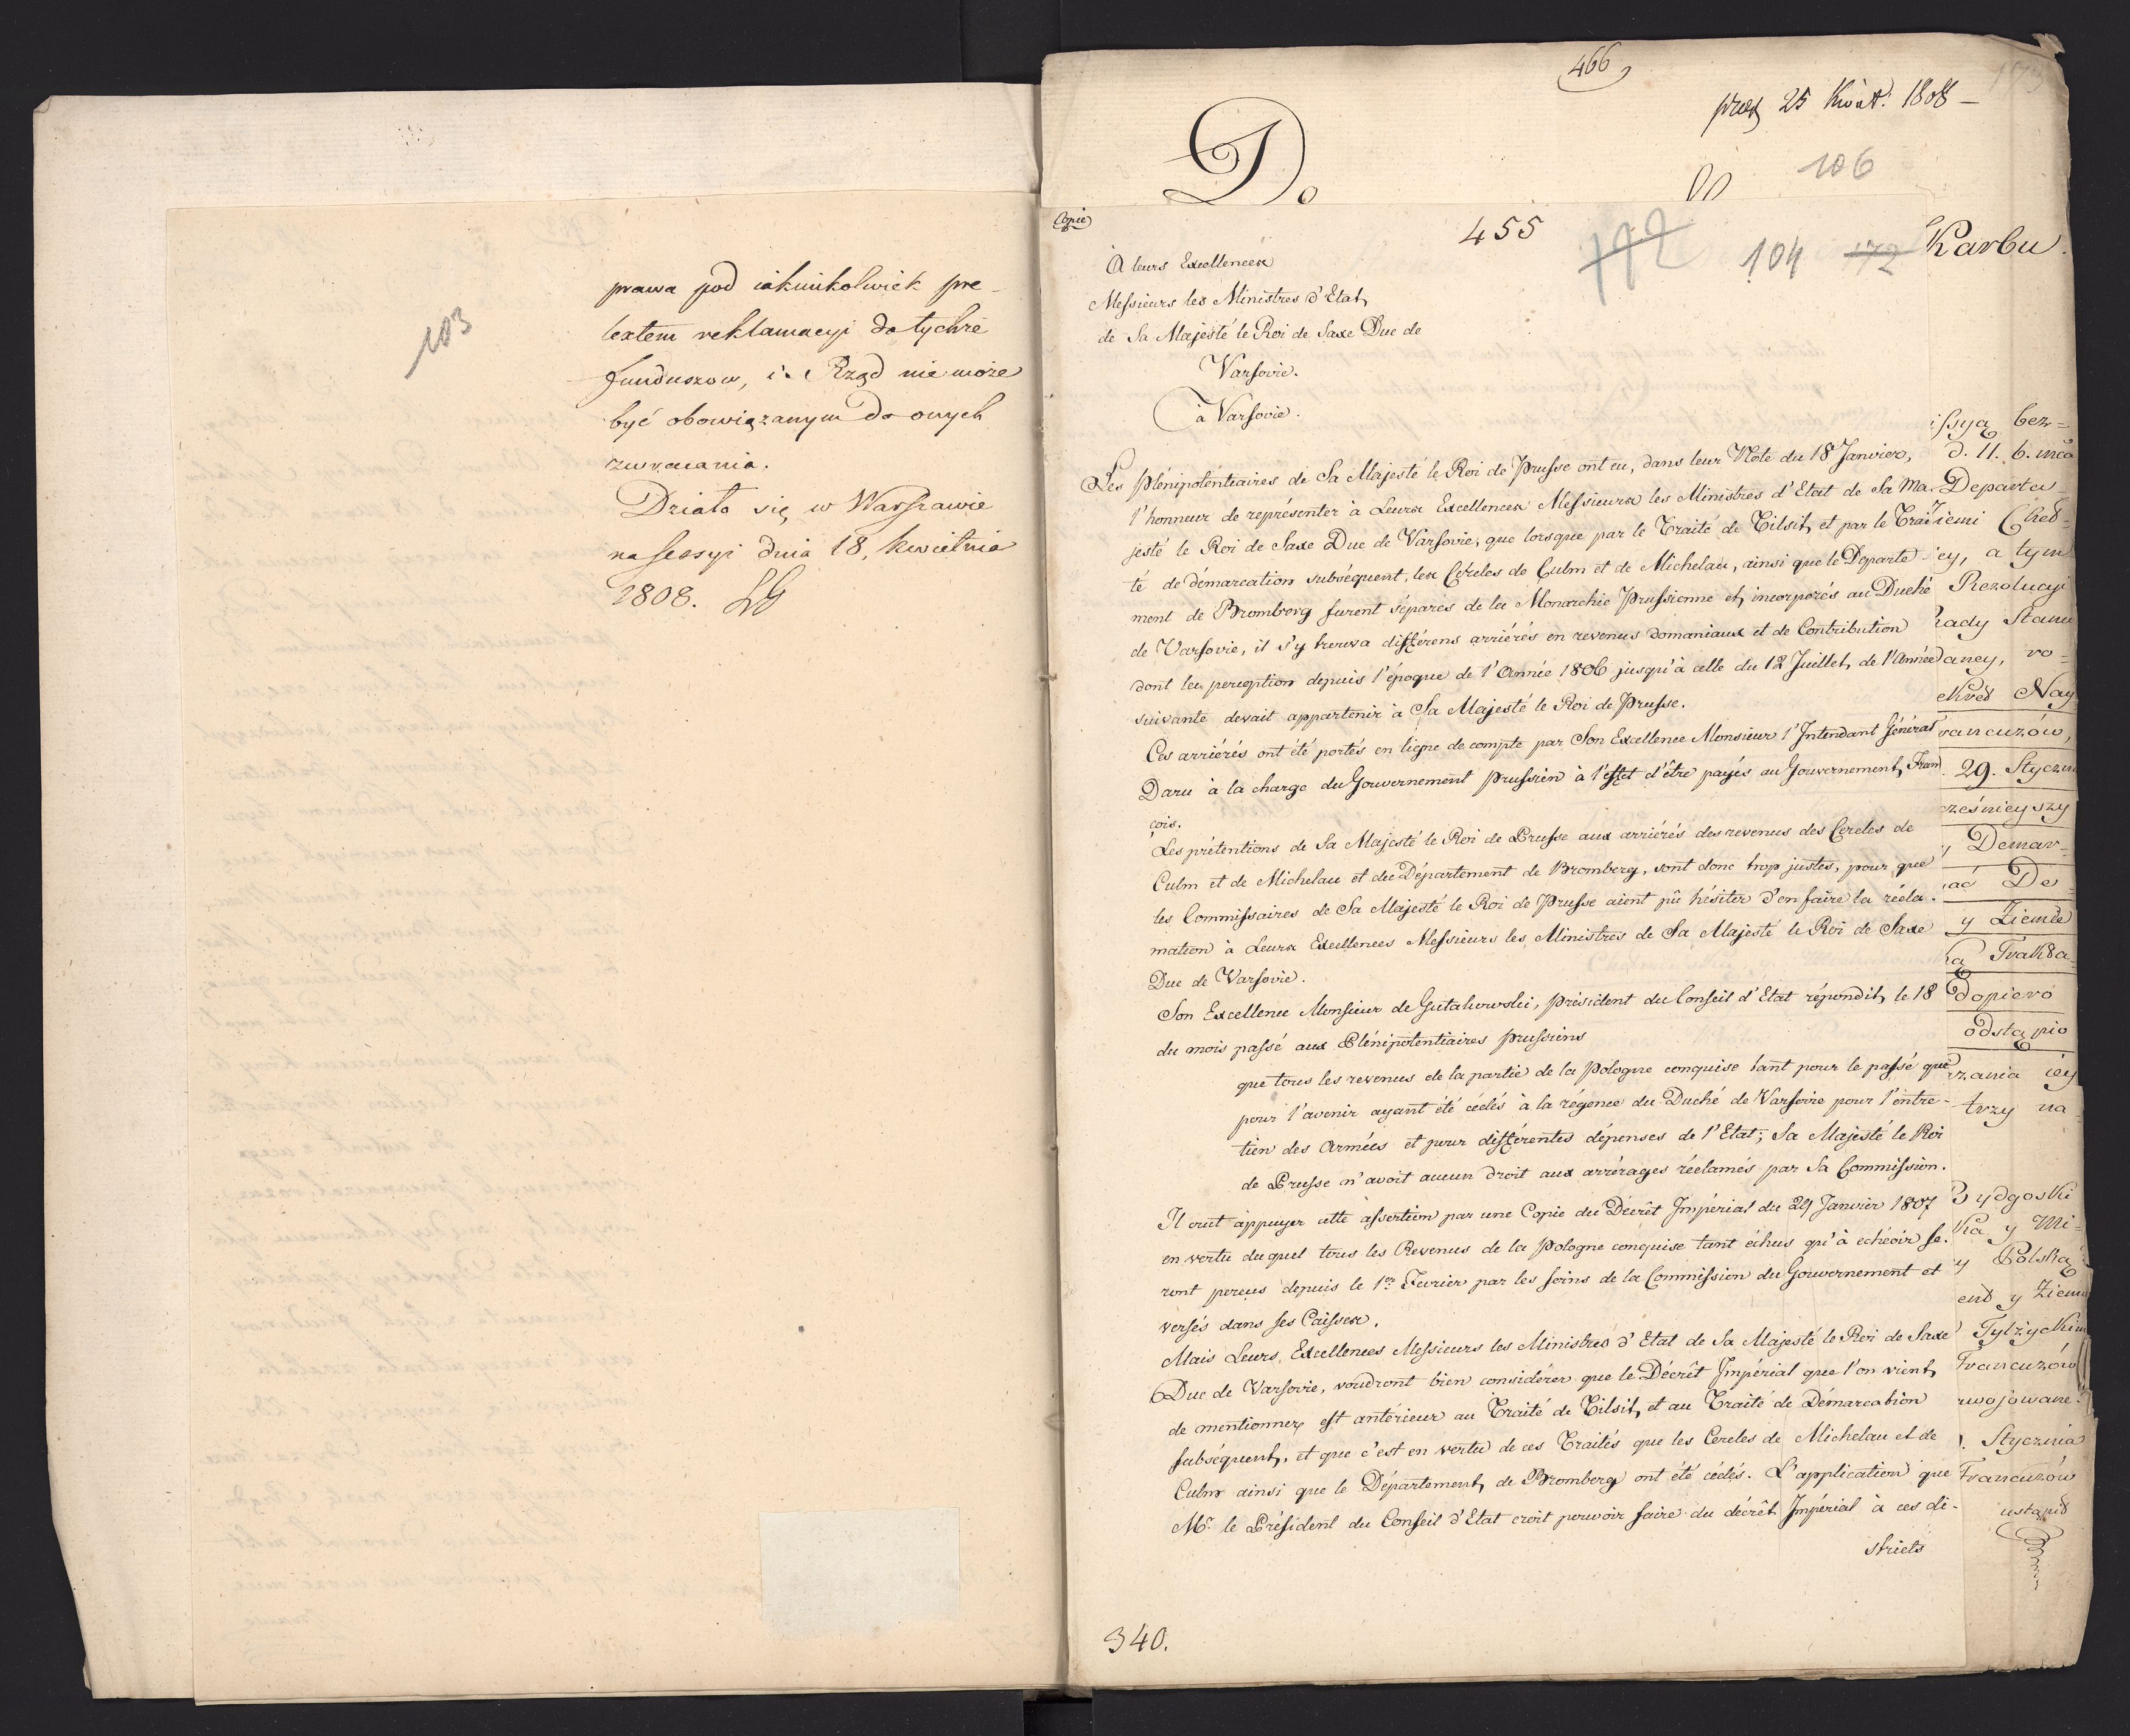 103
prawa pod iakimkolwiek pre-
textem reklamacyi do tychże
funduszow, i Rząd nie może
być obowiązanym do onych
zwracania.
Działo się w Warszawie
na sessyi dnia 18, kwietnia
1808.
466
25 Kwiet: 1808 –
106
Do
Karbu.
Copie
455
192
104
172
A leurs Excellences
Messieurs les Ministres d'Etat
de Sa Majesté le Roi de Saxe Duc de
Varsovie.
à Varsovie.
Les Plénipotentiaires de Sa Majesté le Roi de Prusse ont eu, dans leur Note du 18 Janvier,
l'honneur de représenter à Leurs Excellences Messieurs les Ministres d'Etat de Sa Ma-
jesté le Roi de Saxe Duc de Varsovie, que lorsque par le Traité de Tilsit, et par le Trai-
té de démarcation subséquent, les Cercles de Culm et de Michelau, ainsi que le Departe-
ment de Bromberg furent séparés de la Monarchie Prussienne et, incorporés au Duché
de Varsovie, il s'y trouva différens arriérés en revenus domaniaux et de Contribution
dont la perception depuis l'époque de l'Année 1806 jusqu'à celle du 12 Juillet, de l'Année
suivante devait appartenir à Sa Majesté le Roi de Prusse.
Ces arriérés ont été portés en ligne de compte par Son Excellence Monsieur l'Intendant Général
Daru à la charge du Gouvernement prussien à l'effet d'être payés au Gouvernement, Fran-
çois.
Les prétentions de Sa Majesté le Roi de Prusse aux arriérés des revenus des Cercles de
Culm et de Michelau et du Département de Bromberg, sont donc trop justes, pour que
les Commissaires de Sa Majesté le Roi de Prusse aient pû hésiter d'en faire la récla-
mation à Leurs Excellences Messieurs les Ministres de Sa Majesté le Roi de Saxe
Duc de Varsovie.
Son Excellence Monsieur de Gutakowski, président du Conseil d'Etat répondit, le 18
du mois passé aux Plénipotentiaires prussiens
que tous les revenus de la partie de la Pologne conquise tant pour le passé que
pour l'avenir ayant été cédés à la régence du Duché de Varsovie pour l'entre-
tien des Armées et pour différentes dépenses de l'Etat; Sa Majesté le Roi
de Prusse n'avoit aucun droit aux arrérages réclamés par Sa Commission.
Il crut appuyer cette assertion par une Copie du Décrêt Impérial du 29 Janvier 1807
en vertu duquel tous les Revenus de la Pologne conquise tant échus qu'à echéoir se-
ront perçus depuis le 1er Fevrier par les soins de la Commission du Gouvernement et
versés dans ses Caisses.
Mais Leurs Excellences Messieurs les Ministres d'Etat de Sa Majesté le Roi de Saxe
Duc de Varsovie, voudront bien considérer que le Décrêt Impérial que l'on vient,
de mentionner, est antérieur au Traité de Tilsit, et au Traité de Démarcation
subséquent, et que c'est en vertu de ces Traités que les Cercles de Michelau et de
Culm ainsi que le Département, de Bromberg ont été cédés. L'application que
Mr. le Président du Conseil d'Etat croit pouvoir faire du décrêt Impérial à ces di-
stricts
340.
issyą bez=
Departa
iemi Cheł-
ey, a tym
Rezolucyi
Rady Stanu
daney, vo=
Nay
rancuzów,
29. Stycznia
ześnieyszy
y Demar-
ać De=
y Ziemie
ka Trakta=
dopiero
odstąpio
rzania iey
trzy na-
Bydgoski
ka y Mi-
y Polską
end y Ziemi
Tylżyckim
Francuzów
rwojowane
Stycznia
Francuzów
ustąpił